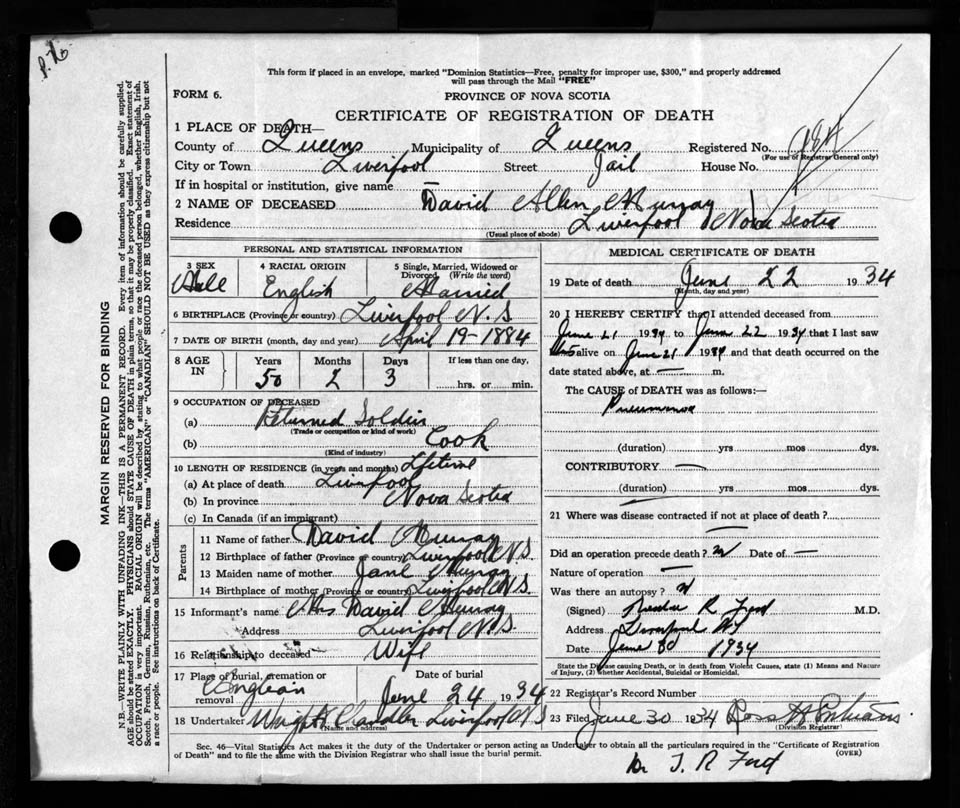 This form if placed in an envelope, marked "Dominion Statistics—Free, penalty for improper use, $300," and properly addressed
will pass through the Mail "FREE"
FORM 6.
PROVINCE OF NOVA SCOTIA
CERTIFICATE OF REGISTRATION OF DEATH
1 PLACE OF DEATH—
County of Queens Municipality of Queens Registered No.
(For use of Registrar General only)
City or Town Liverpool Street Jail House No.
If in hospital or institution, give name —
2 NAME OF DECEASED David Allen Murray
Residence Liverpool Nova Scotia
(Usual place of abode)
PERSONAL AND STATISTICAL INFORMATION
3 SEX 4 RACIAL ORIGIN 5 Single, Married, Widowed or
Divorced (Write the word)
Male English Married
6 BIRTHPLACE (Province or country) Liverpool N.S
7 DATE OF BIRTH (month, day and year) April 19-1884
8 AGE IN Years Months Days If less than one day,
50 2 3 hrs. or min.
9 OCCUPATION OF DECEASED
(a) Returned Soldier
(Trade or occupation or kind of work)
(b) Cook
(Kind of industry)
10 LENGTH OF RESIDENCE (in years and months) Lifetime
(a) At place of death Liverpool
(b) In province Nova Scotia
(c) In Canada (if an immigrant)
Parents
11 Name of father David Murray
12 Birthplace of father (Province or country) Liverpool N.S.
13 Maiden name of mother Jane Murray
14 Birthplace of mother (Province or country) Liverpool N.S.
15 Informant's name Mrs David Murray
Address Liverpool N.S
16 Relationship to deceased Wife
17 Place of burial, cremation or removal Date of burial
June 24 1934
18 Undertaker Liverpool N S
(Name and address)
MEDICAL CERTIFICATE OF DEATH
19 Date of death June 22 1934
(Month, day and year)
20 I HEREBY CERTIFY that I attended deceased from
June 21 1934 to June 22 1934 that I last saw
alive on June 21 1934 and that death occurred on the
date stated above, at — m.
The CAUSE of DEATH was as follows:
Pneumonia
(duration) yrs mos dys.
CONTRIBUTORY —
(duration) yrs mos dys.
21 Where was disease contracted if not at place of death?
—
Did an operation precede death? Date of —
Nature of operation —
Was there an autopsy?
(Signed) R Ford M.D.
Address Liverpool
Date June 30 1934
State the Disease causing Death, or in death from Violent Causes, state (1) Means and Nature
of Injury, (2) whether Accidental, Suicidal or Homicidal.
22 Registrar's Record Number
23 Filed June 30 1934
(Division Registrar)
Sec. 46—Vital Statistics Act makes it the duty of the Undertaker or person acting as Undertaker to obtain all the particulars required in the "Certificate of Registration
of Death" and to file the same with the Division Registrar who shall issue the burial permit.
(OVER)
Dr J. R Ford
MARGIN RESERVED FOR BINDING
N.B.—WRITE PLAINLY WITH UNFADING INK—THIS IS A PERMANENT RECORD. Every item of information should be carefully supplied.
AGE should be stated EXACTLY. PHYSICIANS should STATE CAUSE OF DEATH in plain terms, so that it may be properly classified. Exact statement of
OCCUPATION is very important. RACIAL ORIGIN will be described by stating to what people or race the deceased person belonged, whether English, Irish,
Scotch, French, German, Russian, Ruthenian, etc. The terms "AMERICAN" or "CANADIAN" SHOULD NOT BE USED as they express citizenship but not
a race or people. See instructions on back of Certificate.